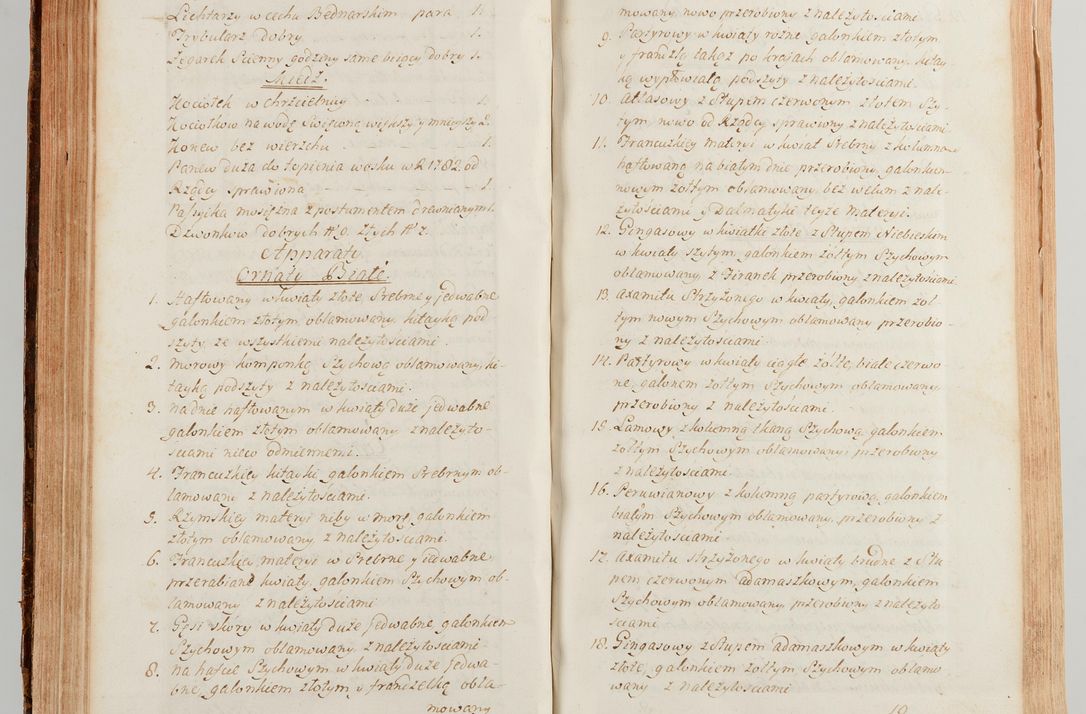 Lichtarzy w cechu Bednarskim para 1.
Trybularz dobry 1.
Zegarek Scienny godziny same bijący dobry 1.
Miedź.
Kociołek w chrzcielnicy 1.
Kociołkow na wodę Swięconą większy y mnieyszy 2.
Konew bez wierzchu 1.
Panew duża do topienia wosku w R. 1782. od
Rządcy sprawiona 1.
Passyika mosiężna z postumentem drewnianym 1.
Dzwonkow dobrych Nº 9. złych Nº 7.
Apparaty.
Ornaty Białe.
1. Haftowany w kwiaty złote Srebrne y jedwabne
galonkiem złotym oblamowany, kitayką pod
szyty, ze wszystkiemi należytościami.
2. Morowy komponką Szychową oblamowany, ki-
tayką podszyty z należytościami.
3. na dnie haftowanym w kwiaty duże jedwabne
galonkiem złotym oblamowany z należyto-
sciami nieco odmiennemi.
4. Francuzkiey kitayki galonkiem Srebrnym ob-
lamowany z należytościami.
5. Rzymskiey materyi niby w morę, galonkiem
złotym oblamowany, z należytościami.
6. Francuzkiey materyi w Srebrne y jedwabne
przerabiane kwiaty, galonkiem Szychowym ob-
lamowany z należytościami
7. Gęsi skory w kwiaty duże jedwabne galonkiem
Szychowym oblamowany, z należytościami
8. na hascie Szychowym w kwiaty duże jedwa-
bne, galonkiem złotym y franzelką obla-
mowany
mowany nowo przerobiony z należytościami.
9. Partyrowy w kwiaty rożne galonkiem złotym
y franzlą takąż po krajach oblamowany, kitay-
ką wypłowiałą podszyty z należytościami.
10. Atłasowy z Słupem czerwonym złotem Szy-
tym, nowo od Rządcy sprawiony z należytościami
11. Francuzkiey materyi w kwiat Srebrny z kolumną
haftowaną na białym dnie przerobiony, galonkiem
nowym żołtym oblamowany bez welum z nale-
żytościami y Dalmatyki teyże materyi.
12. Gingasowy w kwiatki złote z Słupem Niebieskim
w kwiaty szytym, galonkiem żołtym Szychowym
oblamowany, z Firanek przerobiony z należytościami
13. Axamitu Strzyżonego w kwiaty, galonkiem żoł-
tym nowym Szychowym oblamowany przerobio-
ny z należytościami
14. Partyrowy w kwiaty ciągłe żołte, białe czerwo
ne, galonem żołtym Szychowym oblamowany
przerobiony z należytościami.
15. Lamowy z kolumną tkaną Szychową, galonkiem
żołtym Szychowym oblamowany, przerobiony
z należytościami.
16. Peruwianowy z kolumną partyrową, galonkiem
białym Szychowym oblamowany, przerobiony z
należytościami.
17. Axamitu strzyżonego w kwiaty brudne z Słu
pem czerwonym adamaszkowym, galonkiem
Szychowym oblamowany, przerobiony z należyto
sciami.
18. Gingasowy z Słupem adamaszkowym w kwiaty
złote, galonkiem żołtym Szychowym oblamo
wany z należytościami
19